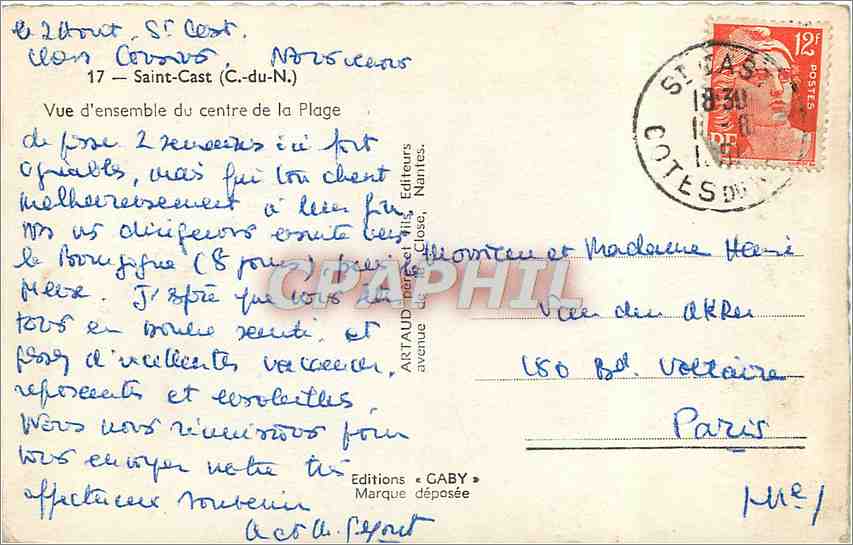 le 2 Aout. St Cast.
Chers Cousins, Nous venons
17 — Saint-Cast (C.-du-N.)
Vue d'ensemble du centre de la Plage
de passer 2 semaines ici fort
agréables, mais qui touchent
malheureusement à leur fin
nous ns dirigeons ensuite vers
la Bourgogne (8 jours) puis la
Meuse. J'espère que vous êtes
tous en bonne santé et
passez d'excellentes vacances,
reposantes et ensoleillées
Nous nous réunissons pour
vous envoyer notre très
affectueux souvenir
ARTAUD père et fils, Editeurs
avenue de la Close, Nantes.
Editions « GABY »
Marque déposée
CPAPHIL
12F
POSTES
RF
ST CAST
18:30
COTES DU
Monsieur et Madame
Van den Akker
150 Bd. Voltaire
Paris
XIe